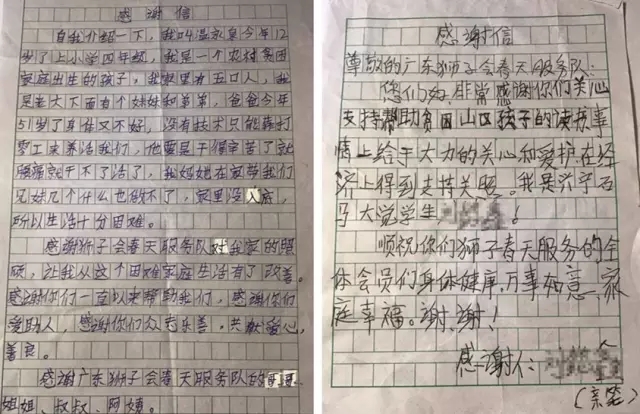 感谢信
自我介绍一下,我叫温永良今年12
岁了上小学四年级,我是一个农村贫困
家庭出生的孩子,我家里有五口人,我
是老大下面有个妹妹和弟弟,爸爸今年
51岁了身体又不好,没有技术只能靠打
零工来养活我们,他要是干得辛苦了就
腰痛就干不了活了,我妈妈在家带我们
兄妹几个什么也做不了,家里没入底,
所以生活十分困难。
感谢狮子会春天服务队对我家的照
顾,让我从这个困难家庭生活有了改善。
感谢你们一直以来帮助我们,感谢你们
爱助人,感谢你们众老乐善,共献爱心,
善良。
感谢广东狮子会春天服务队的哥哥
姐姐、叔叔、阿姨。
感谢信
尊敬的广东狮子会春天服务队:
您们好,非常感谢你们关心
支持帮助贫困山区孩子的读书事
情上给于大力的关心和爱护在经
济上得到支持关照。我是兴宁石
马大觉学生
!
顺祝你们狮子春天服务的全
体会员们身体健康,万事如意、家
庭幸福。谢、谢!
感谢人:
(亲笔)